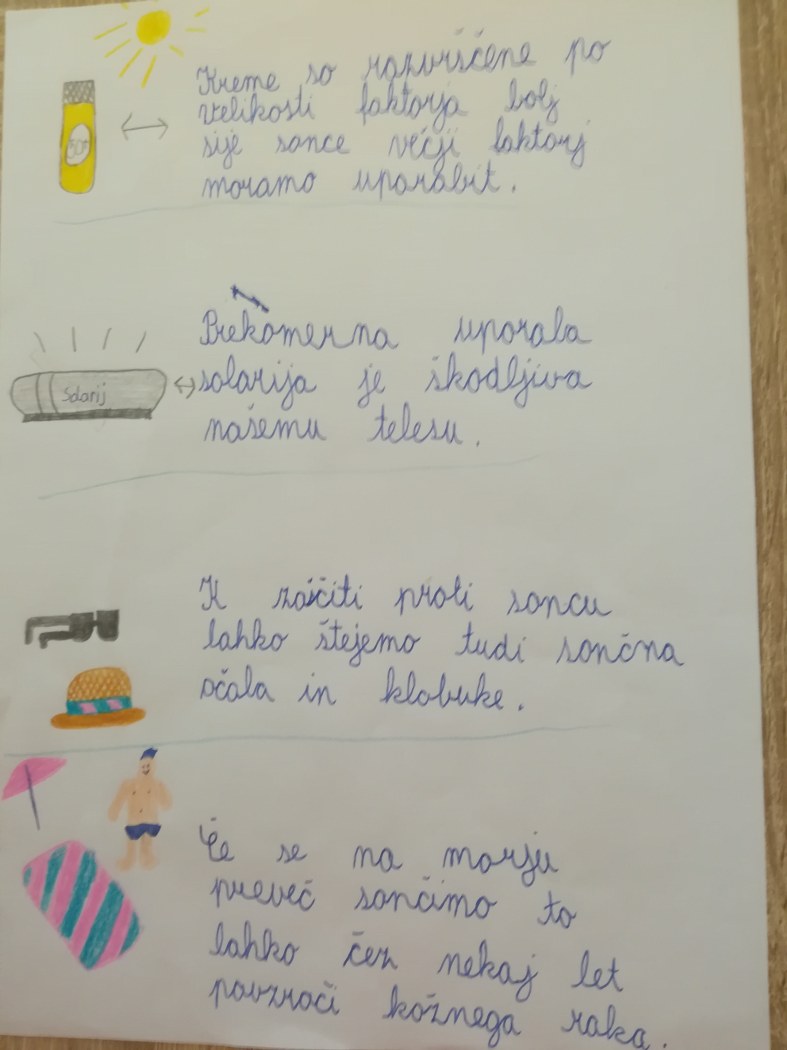 Kreme so razvrščene po
velikosti faktorja bolj
sije sonce večji faktorj
moramo uporabit.
50+
Prekomerna uporaba
solarija je škodljiva
našemu telesu.
Solarij
K zaščiti proti soncu
lahko štejemo tudi sončna
očala in klobuke.
Če se na morju
preveč sončimo to
lahko čez nekaj let
povzroči kožnega raka.